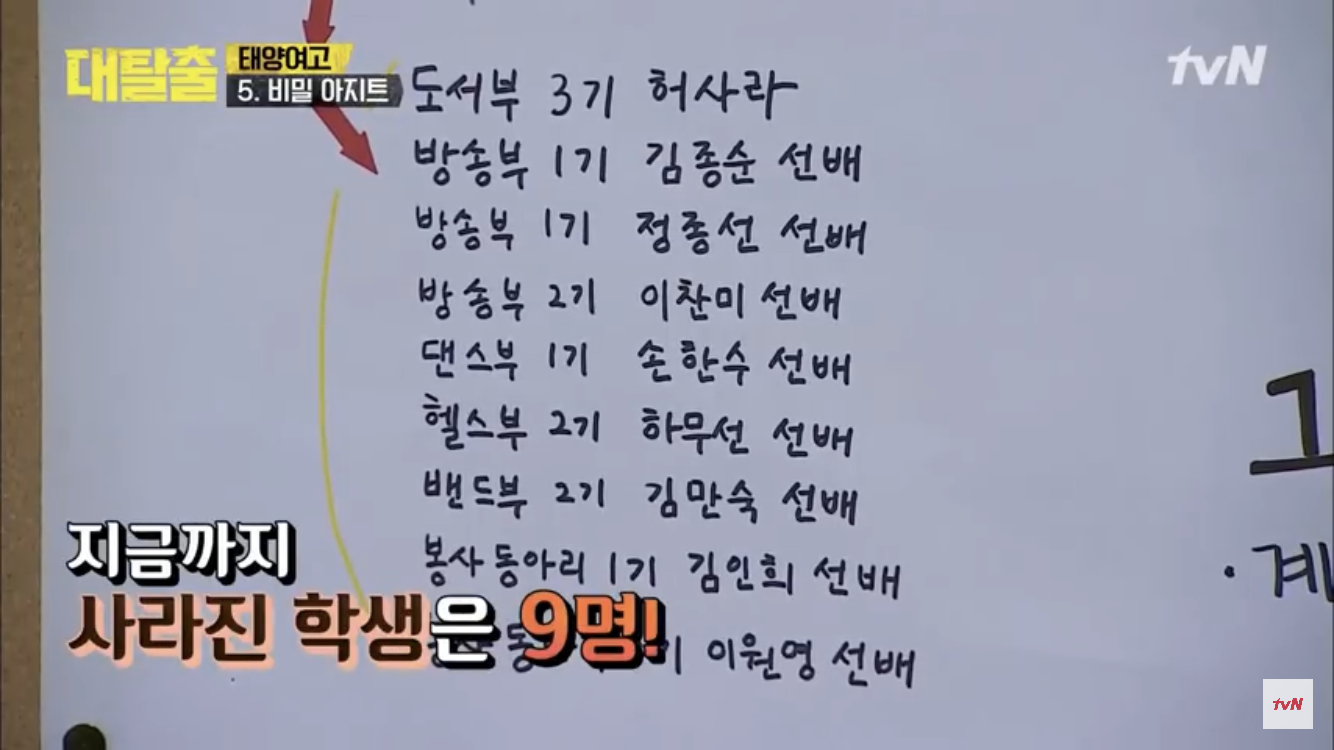 대탈출
태양여고
5. 비밀 아지트
tvN
도서부 3기 허사라
방송부 1기 김종순 선배
방송부 1기 정종선 선배
방송부 2기 이찬미 선배
댄스부 1기 손한수 선배
헬스부 2기 하무선 선배
밴드부 2기 김만숙 선배
봉사 동아리 1기 김인희 선배
이원영 선배
1
· 계
지금까지
사라진 학생은 9명!
tvN